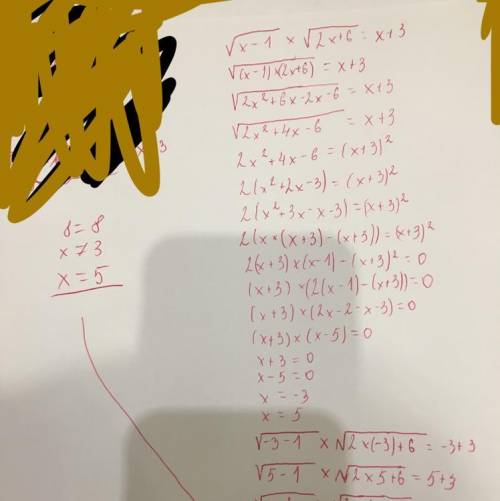 √x-1 × √2x+6 = x+3
√(x-1)×(2x+6) = x+3
√2x²+6x-2x-6 = x+3
√2x²+4x-6 = x+3
2x²+4x-6 = (x+3)²
2(x²+2x-3) = (x+3)²
2(x²+3x-x-3) = (x+3)²
2(x×(x+3)-(x+3)) = (x+3)²
2(x+3)×(x-1)-(x+3)² = 0
(x+3)×(2(x-1)-(x+3)) = 0
(x+3)×(2x-2-x-3) = 0
(x+3)×(x-5) = 0
x+3 = 0
x-5 = 0
x = -3
x = 5
√-3-1 × √2×(-3)+6 = -3+3
√5-1 × √2×5+6 = 5+3
3
8 = 8
x ≠ 3
x = 5